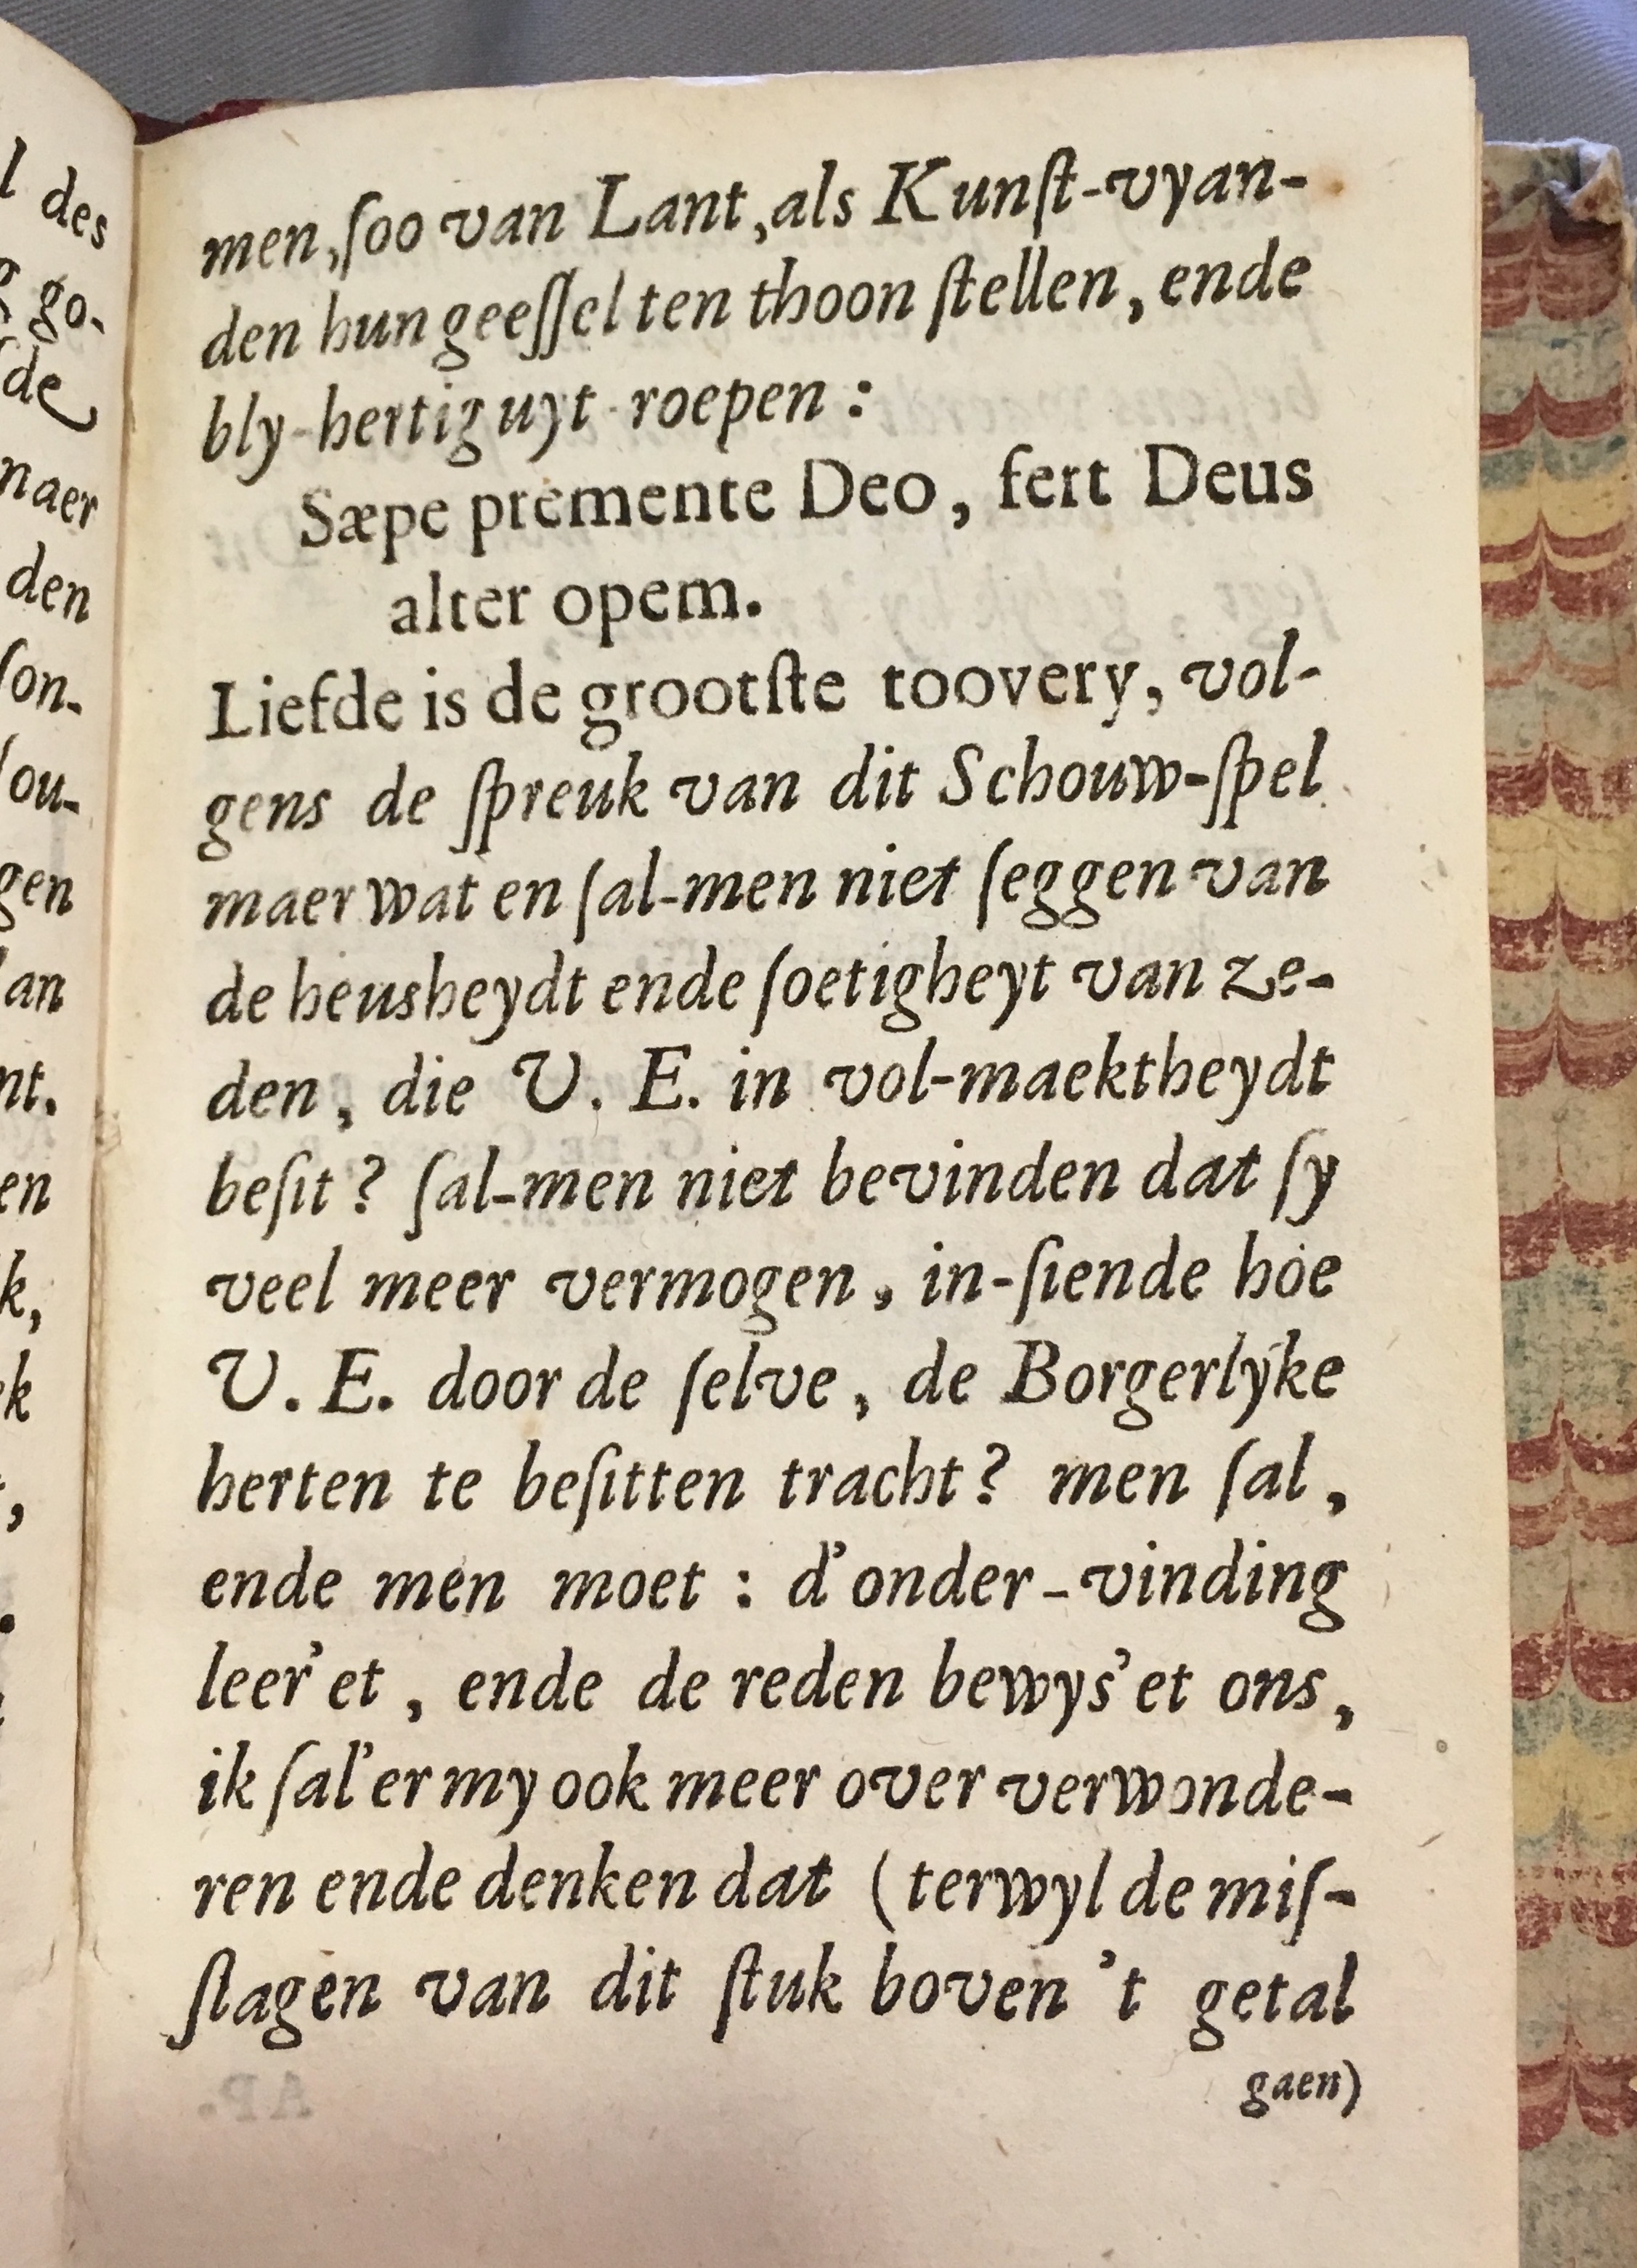 l des
go-
de
naer
den
ſon-
ſou-
gen
an
nt.
en
k,
k
men, ſoo van Lant, als Kunſt-vyan-
den hun geeſſel ten thoon ſtellen, ende
bly-hertig uyt roepen :
Sæpe premente Deo, fert Deus
alter opem.
Liefde is de grootſte toovery, vol-
gens de ſpreuk van dit Schouw-ſpel
maer wat en ſal-men niet ſeggen van
de heusheydt ende ſoetigheyt van ze-
den, die V. E. in vol-maektheydt
beſit? ſal-men niet bevinden dat ſy
veel meer vermogen, in-ſiende hoe
V. E. door de ſelve, de Borgerlyke
herten te beſitten tracht? men ſal,
ende men moet : d'onder-vinding
leer'et, ende de reden bewys'et ons,
ik ſal'er my ook meer over verwonde-
ren ende denken dat (terwyl de miſ-
ſlagen van dit ſtuk boven 't getal
gaen)